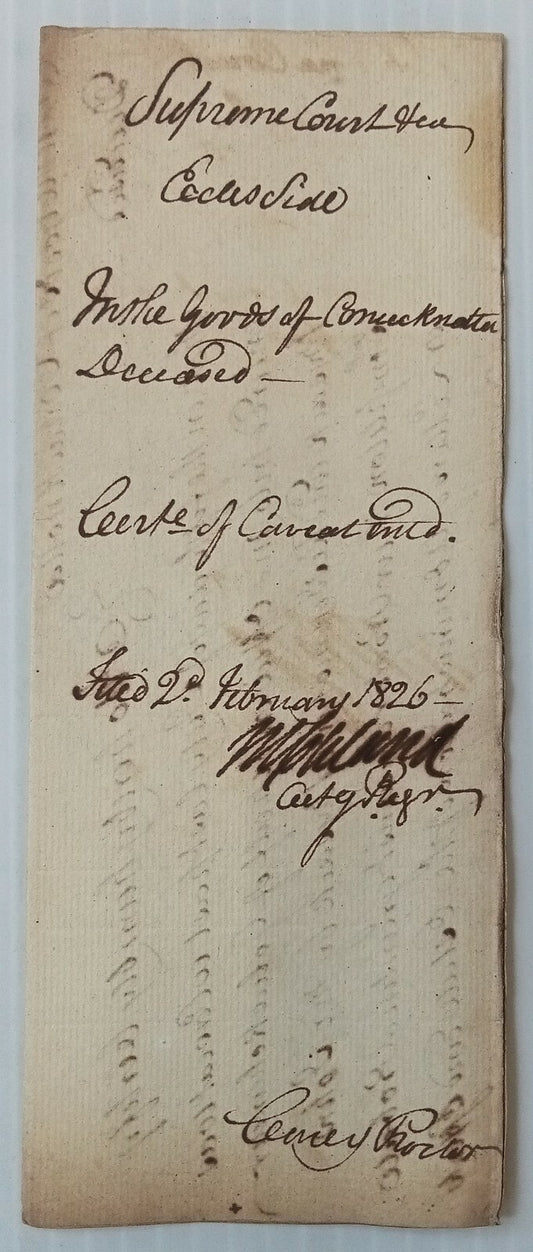 Supreme Court &ca
Eccles Side
In the Goods of
Deceased —
Certe of Caveat entd.
Filed 2d. February 1826 —
Actg Regr.
Proctor